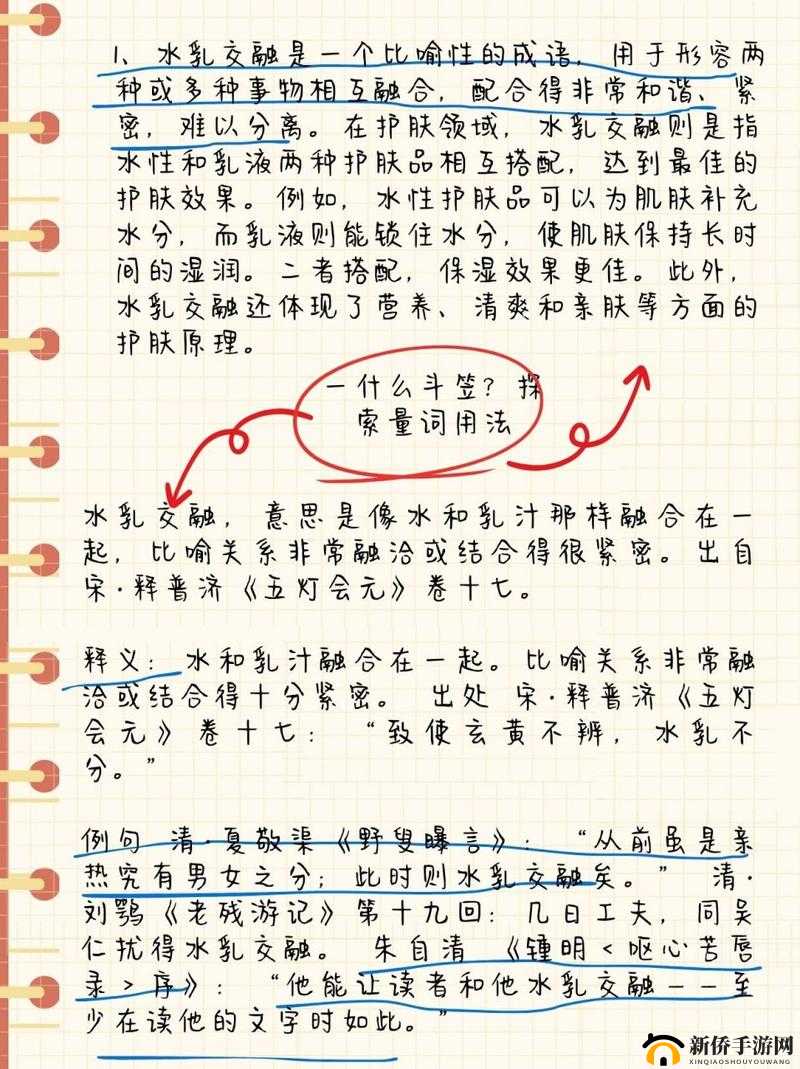 1、水乳交融是一个比喻性的成语，用于形容两
种或多种事物相互融合，配合得非常和谐、紧
密，难以分离。在护肤领域，水乳交融则是指
水性和乳液两种护肤品相互搭配，达到最佳的
护肤效果。例如，水性护肤品可以为肌肤补充
水分，而乳液则能锁住水分，使肌肤保持长时
间的湿润。二者搭配，保湿效果更佳。此外，
水乳交融还体现了营养、清爽和亲肤等方面的
护肤原理。
一什么斗笠？探
索量词用法
水乳交融，意思是像水和乳汁那样融合在一
起，比喻关系非常融洽或结合得很紧密。出自
宋·释普济《五灯会元》卷十七。
释义：水和乳汁融合在一起。比喻关系非常融
洽或结合得十分紧密。 出处 宋·释普济《五灯
会元》卷十七：“致使玄黄不辨，水乳不
分。”
例句 清·夏敬渠《野叟曝言》：“从前虽是亲
热究有男女之分；此时则水乳交融矣。” 清·
刘鹗《老残游记》第十九回：几日工夫，同吴
仁扰得水乳交融。 朱自清 《锺明<呕心苦唇
录>序》：“他能让读者和他水乳交融--至
少在读他的文字时如此。”
新侨手游网
XINQIAOSHOUYOUWANG